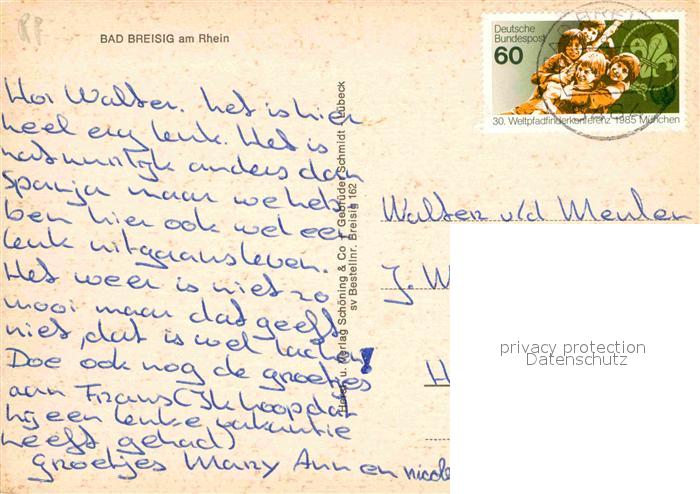 BAD BREISIG am Rhein
Deutsche
Bundespost
60
30. Weltpfadfinderkonferenz 1985 München
Hoi Walter. het is hier
heel erg leuk. Het is
natuurlijk anders dan
Spanje maar we heb-
ben hier ook wel een
leuk uitgaansleven.
Het weer is niet zo
mooi maar dat geeft
niet, dat is wel lachen!
Doe ook nog de groetjes
aan Frans (Ik hoop dat
hij een leuke vakantie
heeft gehad)
groetjes Mary Ann en nicole
Schöning & Co + Gebrüder Schmidt · Lübeck
sv Bestellnr. Breisig 162
Walter v/d Meulen
J. W
H
privacy protection
Datenschutz